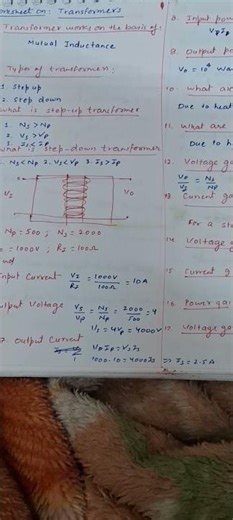 worksheet on: Transformers
Transformer works on the basis of:
Mutual Inductance
Types of transformer:
1 Step up
2. Step down
what is step-up transformer
1. Ns > Np
2. Vs > Vp
3. Is < Ip
what is step-down transformer
1. Ns < Np 2. Vs < Vp 3. Is > Ip
Vs
Vo
Np = 500 ; Ns = 2000
= 1000V ; Rs = 100Ω
Input Current - Vs/Rs = 1000V/100Ω = 10A
Output Voltage Vs/Vp = Ns/Np = 2000/500 = 4
Vs = 4Vp = 4000V
7. Output Current VpIp = VsIs
1000.10 = 4000Is => Is = 2.5A
8. Input pow
9. Output po
10. what are
Due to heat
11. What are
Due to h
12. Voltage ga
= Ns/Np
13. Current ga
For a st
14. Voltage
15 Current g
16. Power ga
17. Voltage ga